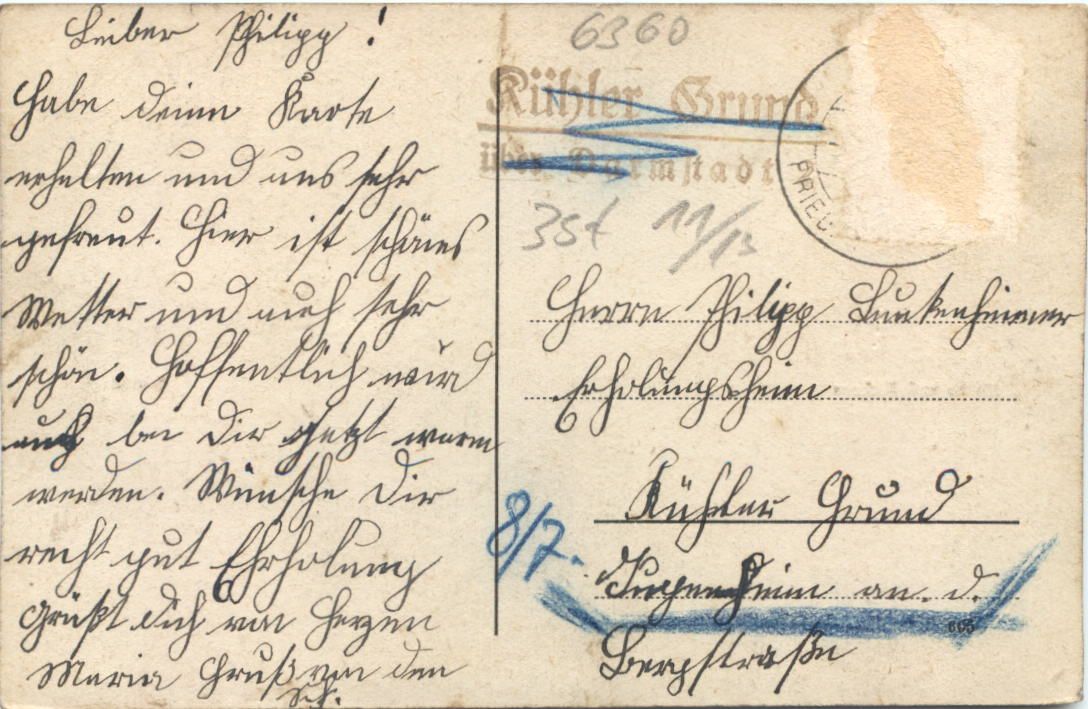 Lieber Philipp!
Habe deine Karte
erhalten und uns sehr
gefreut. Hier ist schönes
Wetter und auch sehr
schön. Hoffentlich wird
auch bei Dir jetzt warm
werden. Wünsche Dir
recht gut Ehrholung
Grüßt dich von Herzen
Maria Gruß von den
Sch.
6360
Kühler Grund
über Darmstadt
35t 11/13
PRIEU
Herrn Philipp
Erholungsheim
Kühler Grund
8/7.
Jugenheim an. d.
605
Bergstraße